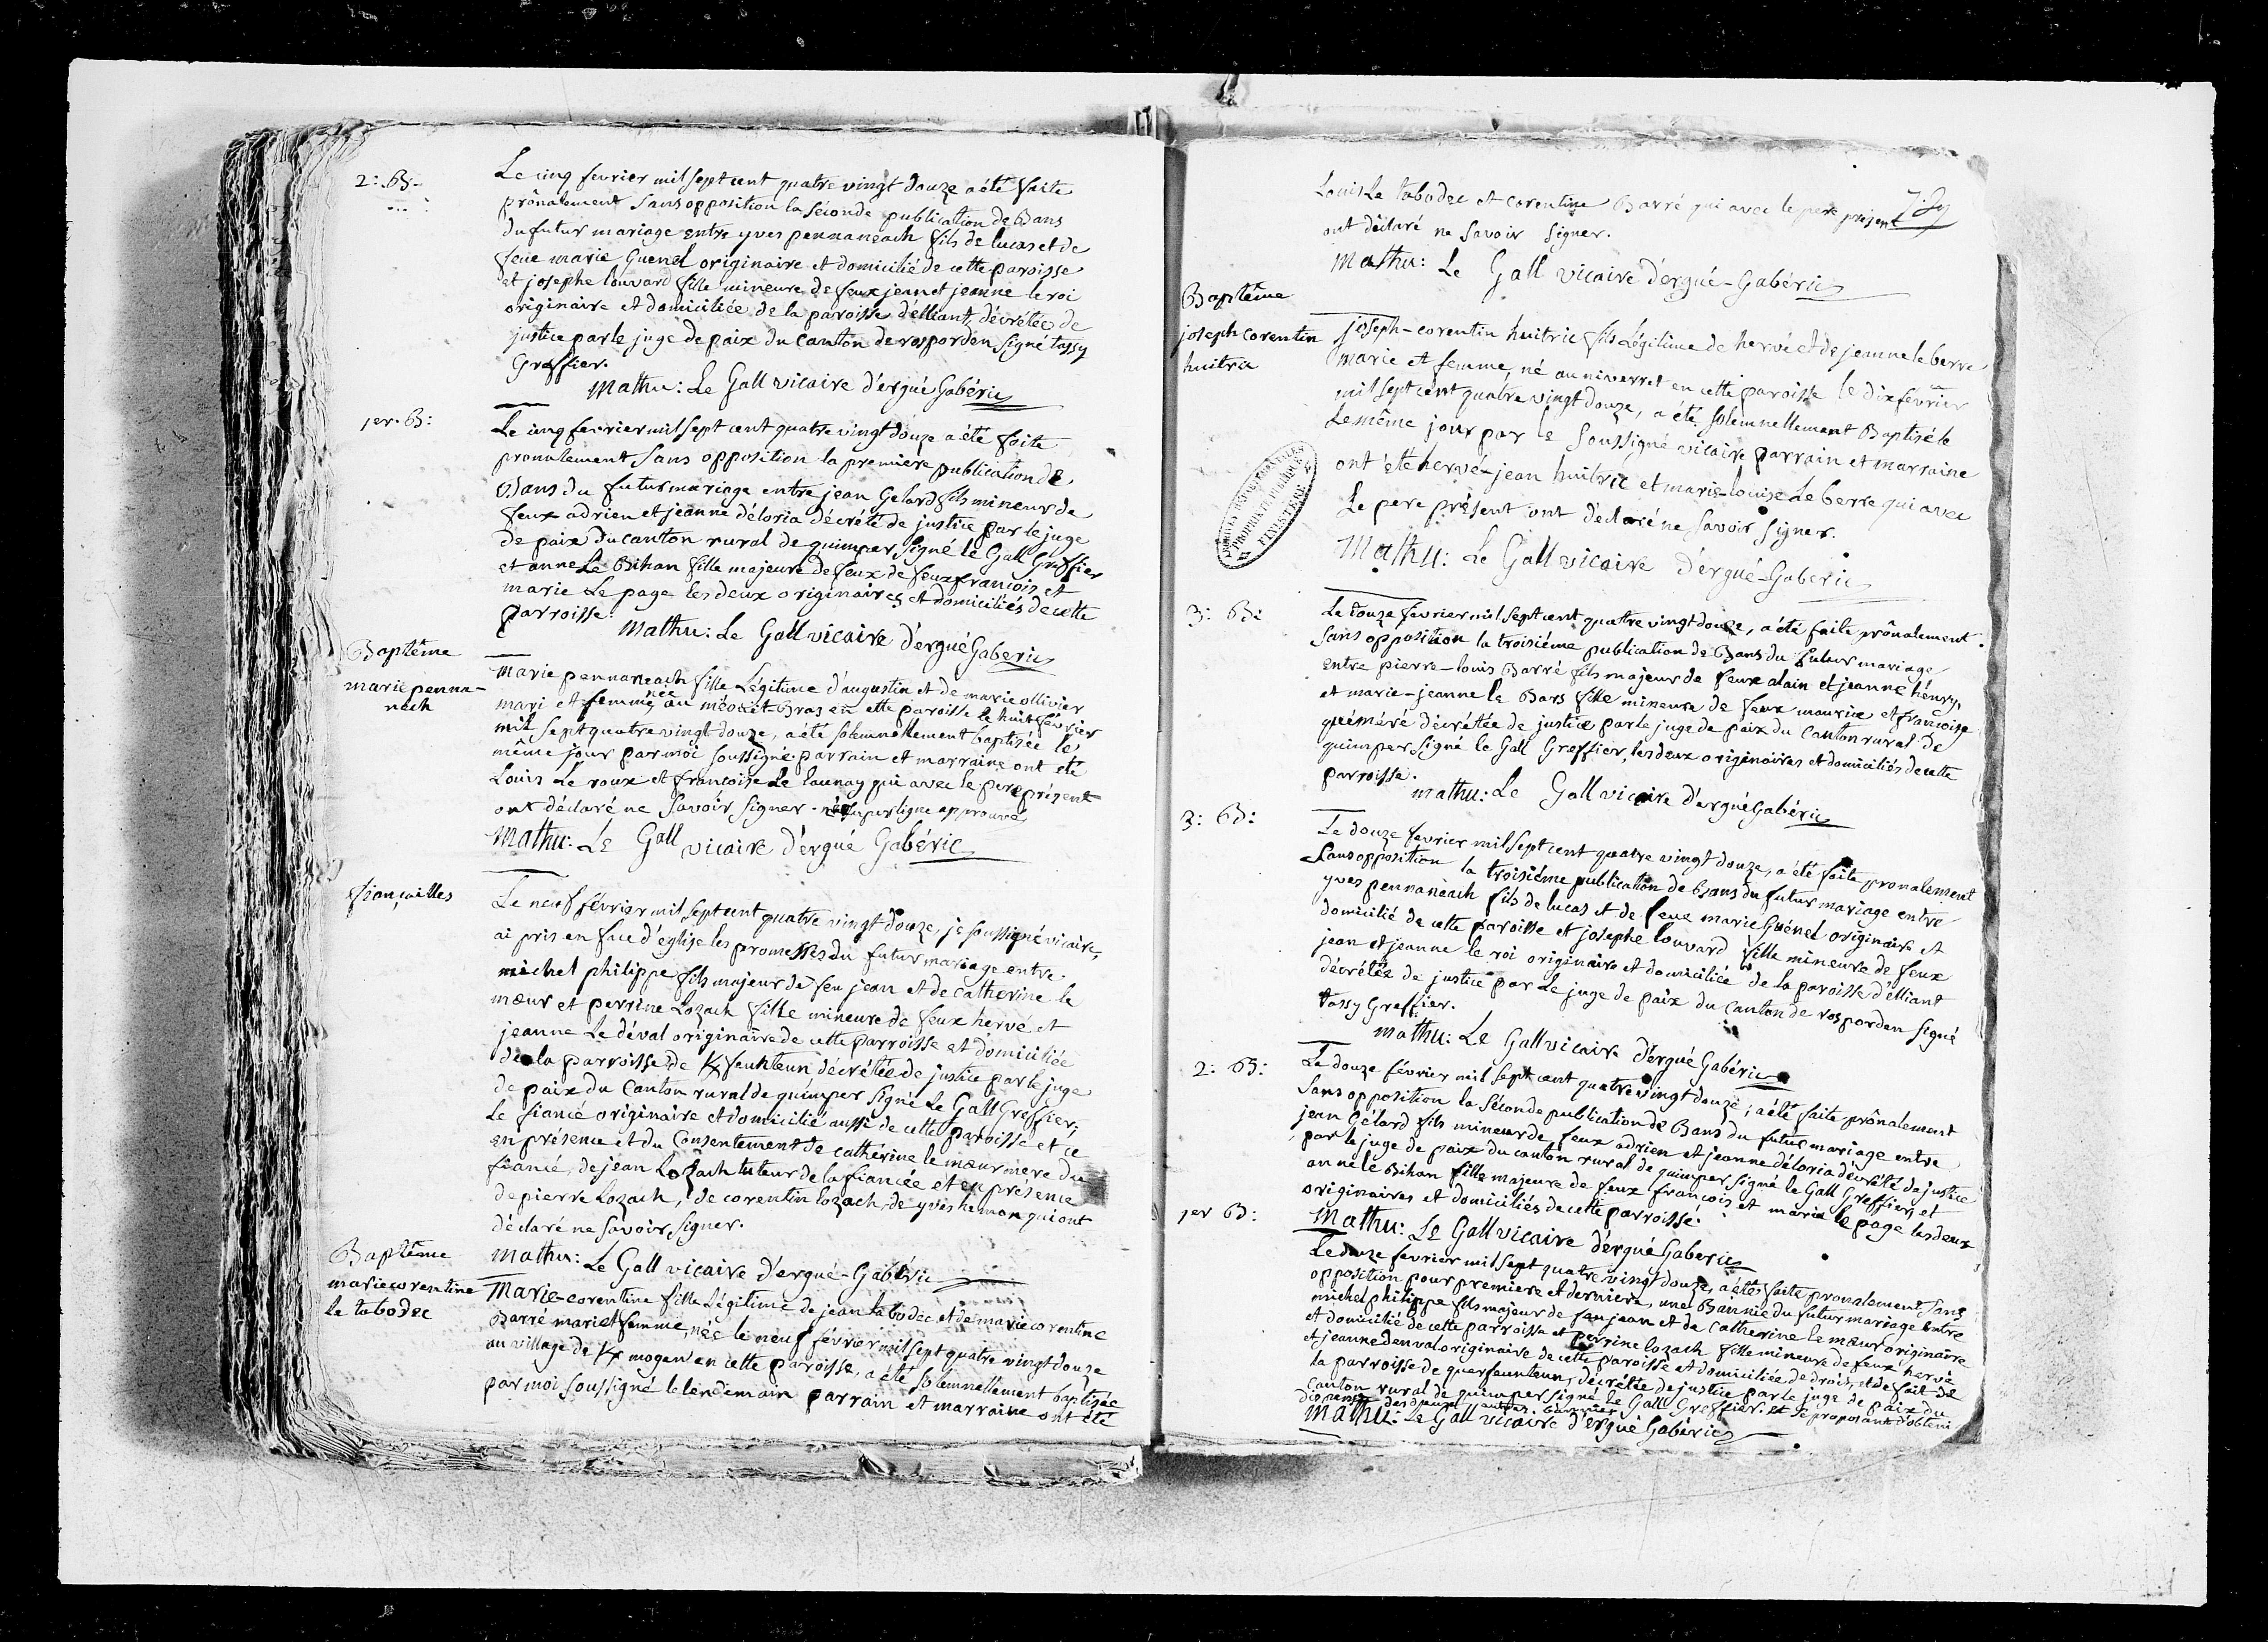 2: B.
Le cinq fevrier mil sept cent quatre vingt douze a été faite
prônalement sans opposition la seconde publication de Bans
du futur mariage entre yves pennaneach fils de lucas et de
feue marie Guenel originaire et domicilié de cette paroisse
et josephe louvard fille mineure de feux jean et jeanne le roi
originaire et domiciliée de la paroisse d'élliant, décrétée de
justice par le juge de paix du canton de rosporden signé tassy
Greffier.
Mathu: Le Gall vicaire d'ergué Gabéric
1er. B:
Le cinq fevrier mil sept cent quatre vingt douze a été faite
pronalement sans opposition la première publication de
Bans du futur mariage entre jean Gelard fils mineur de
feux adrien et jeanne déloria décrété de justice par le juge
de paix du canton rural de quimper signé le Gall Greffier
et anne Le Bihan fille majeure de feux de feux francois et
marie Le page les deux originaires et domiciliés de cette
parroisse.
Mathu: Le Gall vicaire d'ergué Gaberic
Baptême
marie penna-
neach
Marie pennaneach fille Légitime d'augustin et de marie ollivier
mari et femme née au méouet-Bras en cette paroisse le huit février
mil sept quatre vingt douze, a été solemnellement baptisée le
même jour par moi soussigné parrain et marraine ont été
Louis Le roux et francoise Le launay qui avec le pere présent
ont déclaré ne savoir signer. née superligne approuvé
Mathu: Le Gall vicaire d'ergué Gabéric
fiançailles
Le neuf février mil sept cent quatre vingt douze, je soussigné vicaire,
ai pris en face d'eglise les promesses du futur mariage entre
michel philippe fils majeur de feu jean et de catherine le
mœur et perrine Lozach fille mineure de feux hervé et
jeanne Le déval originaire de cette parroisse et domiciliée
de la parroisse de Kfeunteun décrétée de justice par le juge
de paix du Canton rural de quimper signé Le Gall Greffier;
Le fiancé originaire et domicilié aussi de cette paroisse et ce
en présence et du Consentement de cathérine le mœur mere du
fiancé, de jean Lozach tuteur de la fiancée et en présence
de pierre Lozach, de corentin lozach, de yves hemon qui ont
déclaré ne savoir signer.
Mathu: Le Gall vicaire d'ergué-Gabéric
Baptême
marie corentine
Le tabodec
Marie-corentine fille Légitime de jean tabodec et de marie corentine
Barré mari et femme, née le neuf février mil sept quatre vingt douze
au village de Kmogen en cette paroisse, a été solemnellement baptisée
par moi soussigné le lendemain parrain et marraine ont été
Louis Le tabodec et corentine Barré qui avec le pere présent
ont déclaré ne savoir signer.
Mathu: Le Gall vicaire d'ergué-Gabéric
Baptême
joseph corentin
huitric
joseph-corentin huitric fils Légitime de hervé et de jeanne le berre
marie et femme, né au niverret en cette paroisse le dix février
mil sept cent quatre vingt douze, a été solemnellement Baptisé le
Le même jour par le soussigné vicaire parrain et marraine
ont été hervé-jean huitric et marie-louise Le berre qui avec
Le pere présent ont déclaré ne savoir signer.
Mathu: Le Gall vicaire d'ergué-Gaberic
3: B:
Le douze février mil sept cent quatre vingt douze, a été faite prônalement
sans opposition la troisiéme publication de Bans du futur mariage
entre pierre-louis Barré fils majeur de feux alain et jeanne hénry,
et marie-jeanne le Bars fille mineure de feux maurice et francoise
quéméré décrétée de justice par le juge de paix du Canton rural de
quimper signé le Gall Greffier, les deux originaires et domiciliés de cette
parroisse.
mathu: Le Gall vicaire d'ergué Gabéric
3: B:
Le douze fevrier mil sept cent quatre vingt douze, a été faite pronalement
sans opposition la troisiéme publication de Bans du futur mariage entre
yves pennaneach fils de lucas et de feue marie Guénel originaire et
domicilié de cette paroisse et josephe louvard fille mineure de feux
jean et jeanne le roi originaire et domiciliée de la paroisse d'élliant
décrétée de justice par Le juge de paix du canton de rosporden signé
tassy Greffier.
mathu: Le Gall vicaire d'ergué Gabéric
2: B:
Le douze février mil sept cent quatre vingt douze; a été faite prônalement
sans opposition la séconde publication de Bans du futur mariage entre
jean Gélard fils mineur de feux adrien et jeanne déloria décrété de justice
par le juge de paix du canton rural de quimper signé le Gall Greffier, et
anne le Bihan fille majeure de feux francois et marie le page les deux
originaires et domiciliés de cette parroisse.
Mathu: Le Gall vicaire d'ergué Gaberic
1er B:
Le douze fevrier mil sept quatre vingt douze, a été faite pronalement sans
opposition pour premiere et derniere une Bannie du futur mariage entre
michel philippe fils majeur de feu jean et de catherine le mœur originaire
et domicilié de cette parroisse et perrine lozach fille mineure de feux hervé
et jeanne denval originaire de cette paroisse et domiciliée de droit et de fait de
la parroisse de querfeunteun, décrétée de justice par le juge de paix du
canton rural de quimper signé le Gall Greffier. et se proposant d'obtenir
dispense des deux autres bannies
Mathu: Le Gall vicaire d'ergué Gabéric
ARCHIVES DEPARTEMENTALES
PROPRIETE PUBLIQUE
FINISTERE